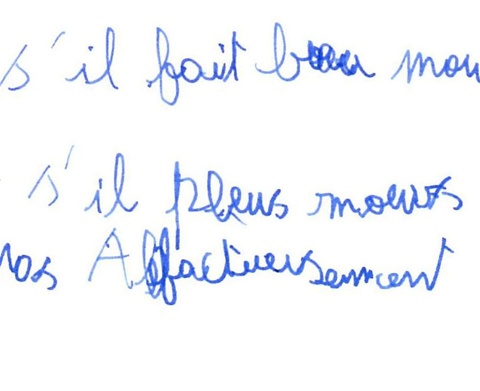 s'il fait beau mou
s'il pleus mouts
nos Affactueusement